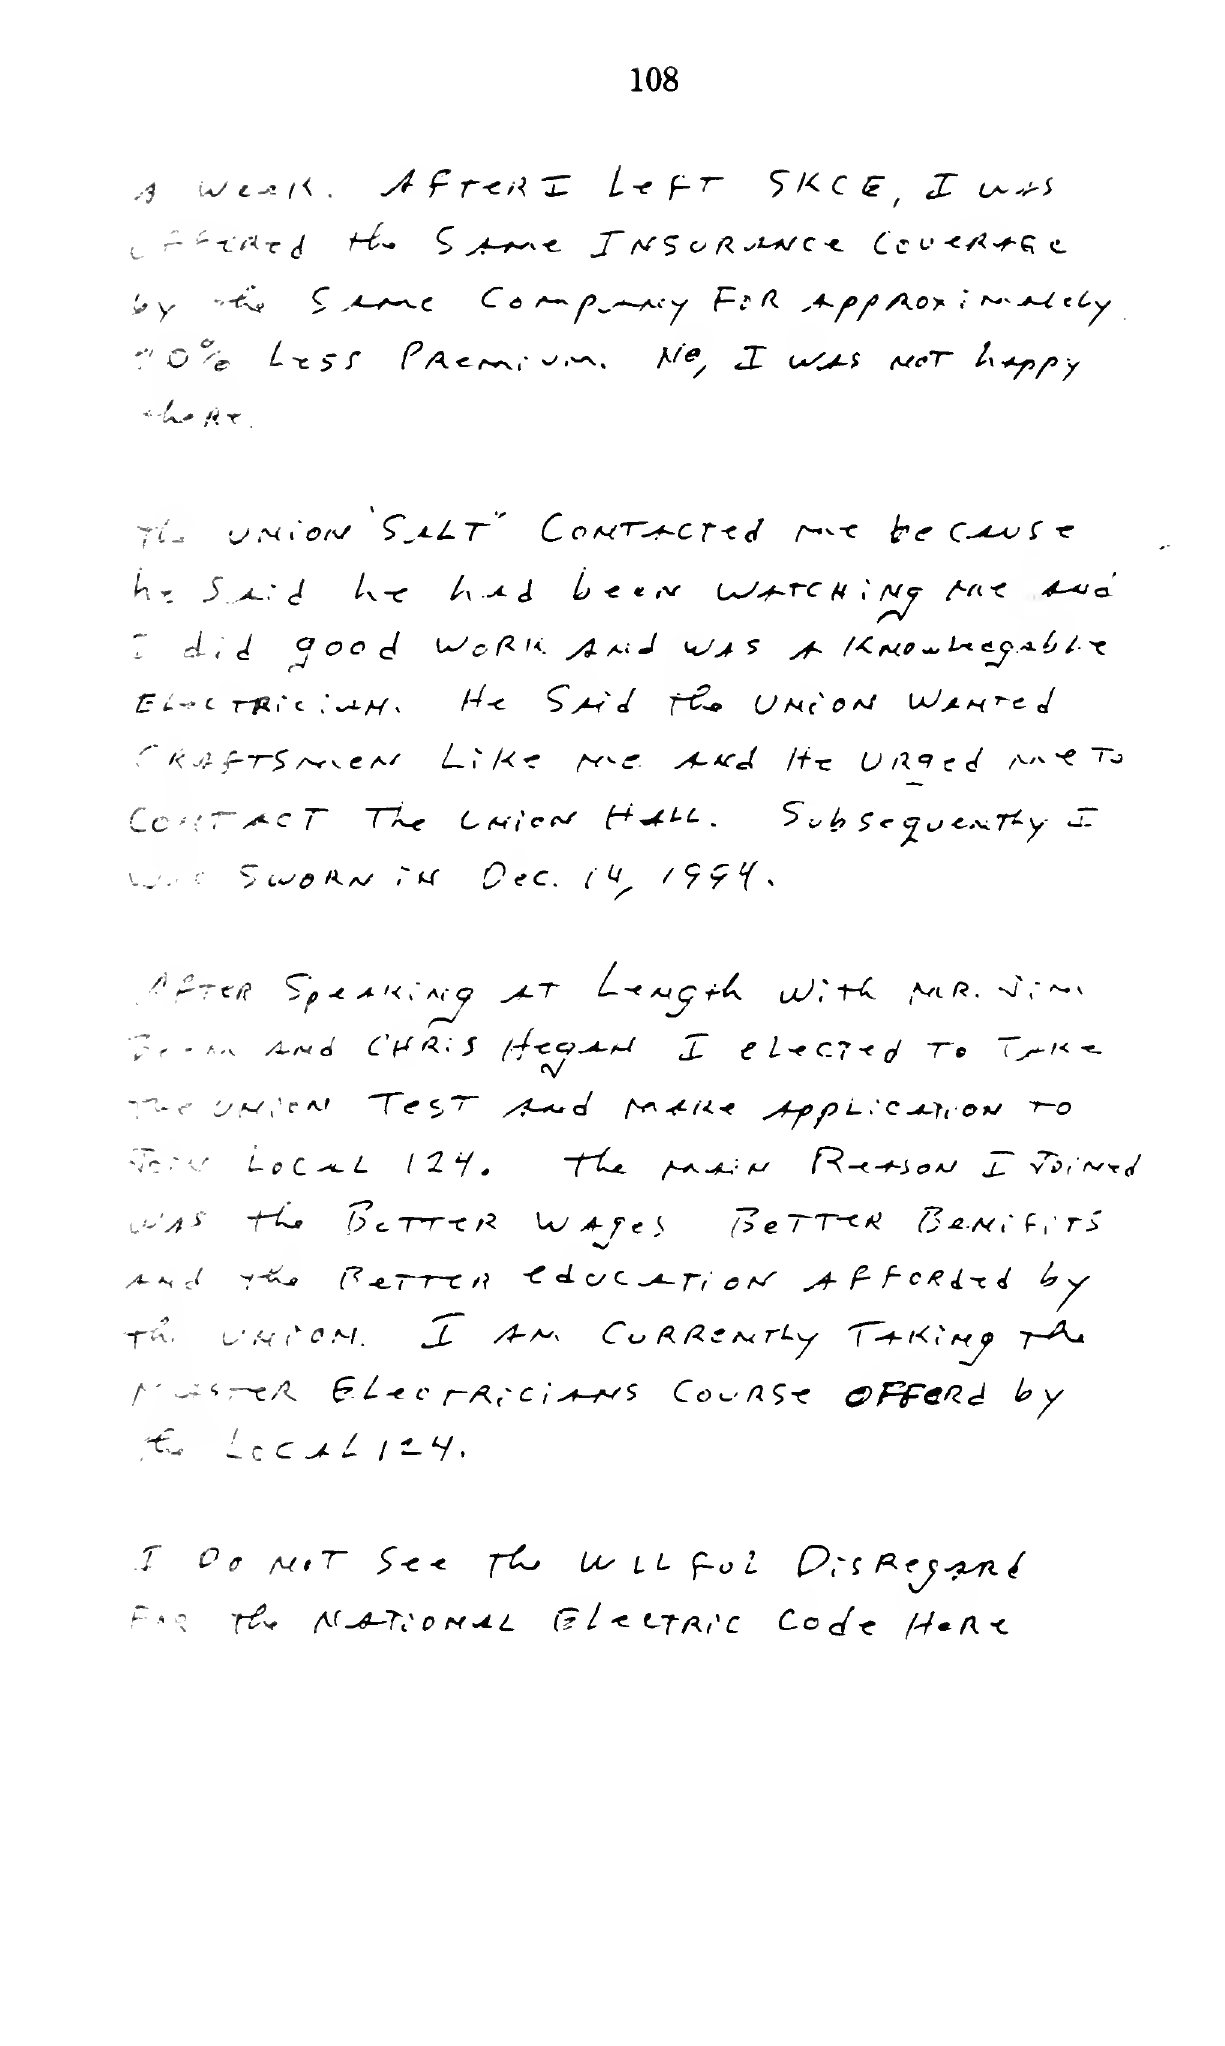 108
A Week. After I Left SKCE, I was
offered the Same Insurance Coverage
by the Same Company For approximately
0% Less Premium. No, I was not happy
there.
The union "Salt" Contacted me because
he Said he had been watching me and
I did good work and was a Knowlegable
Electrician. He Said the union wanted
Craftsmen Like me and He urged me to
Contact The union Hall. Subsequently I
was Sworn in Dec. 14, 1994.
After Speaking at Length with Mr. Jim
and Chris Hegan I elected to Take
the union Test and make application to
Join Local 124. The main Reason I Joined
was the Better wages Better Benifits
and the Better education afforded by
the union. I am Currently Taking the
Master Electricians Course offerd by
the Local 124.
I Do not See the willful Disregard
For the National Electric Code Here